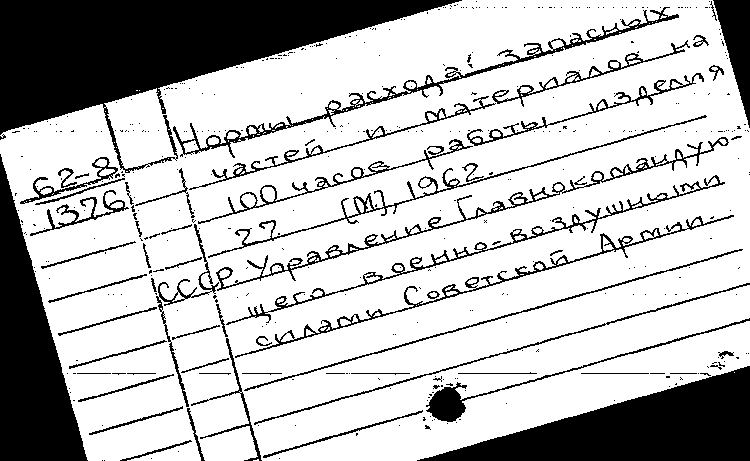 62-8
1376
Нормы расхода запасных
частей и материалов на
100 часов работы изделия
27 [М], 1962.
СССР. Управление Главнокомандую-
щего военно-воздушными
силами Советской Армии.